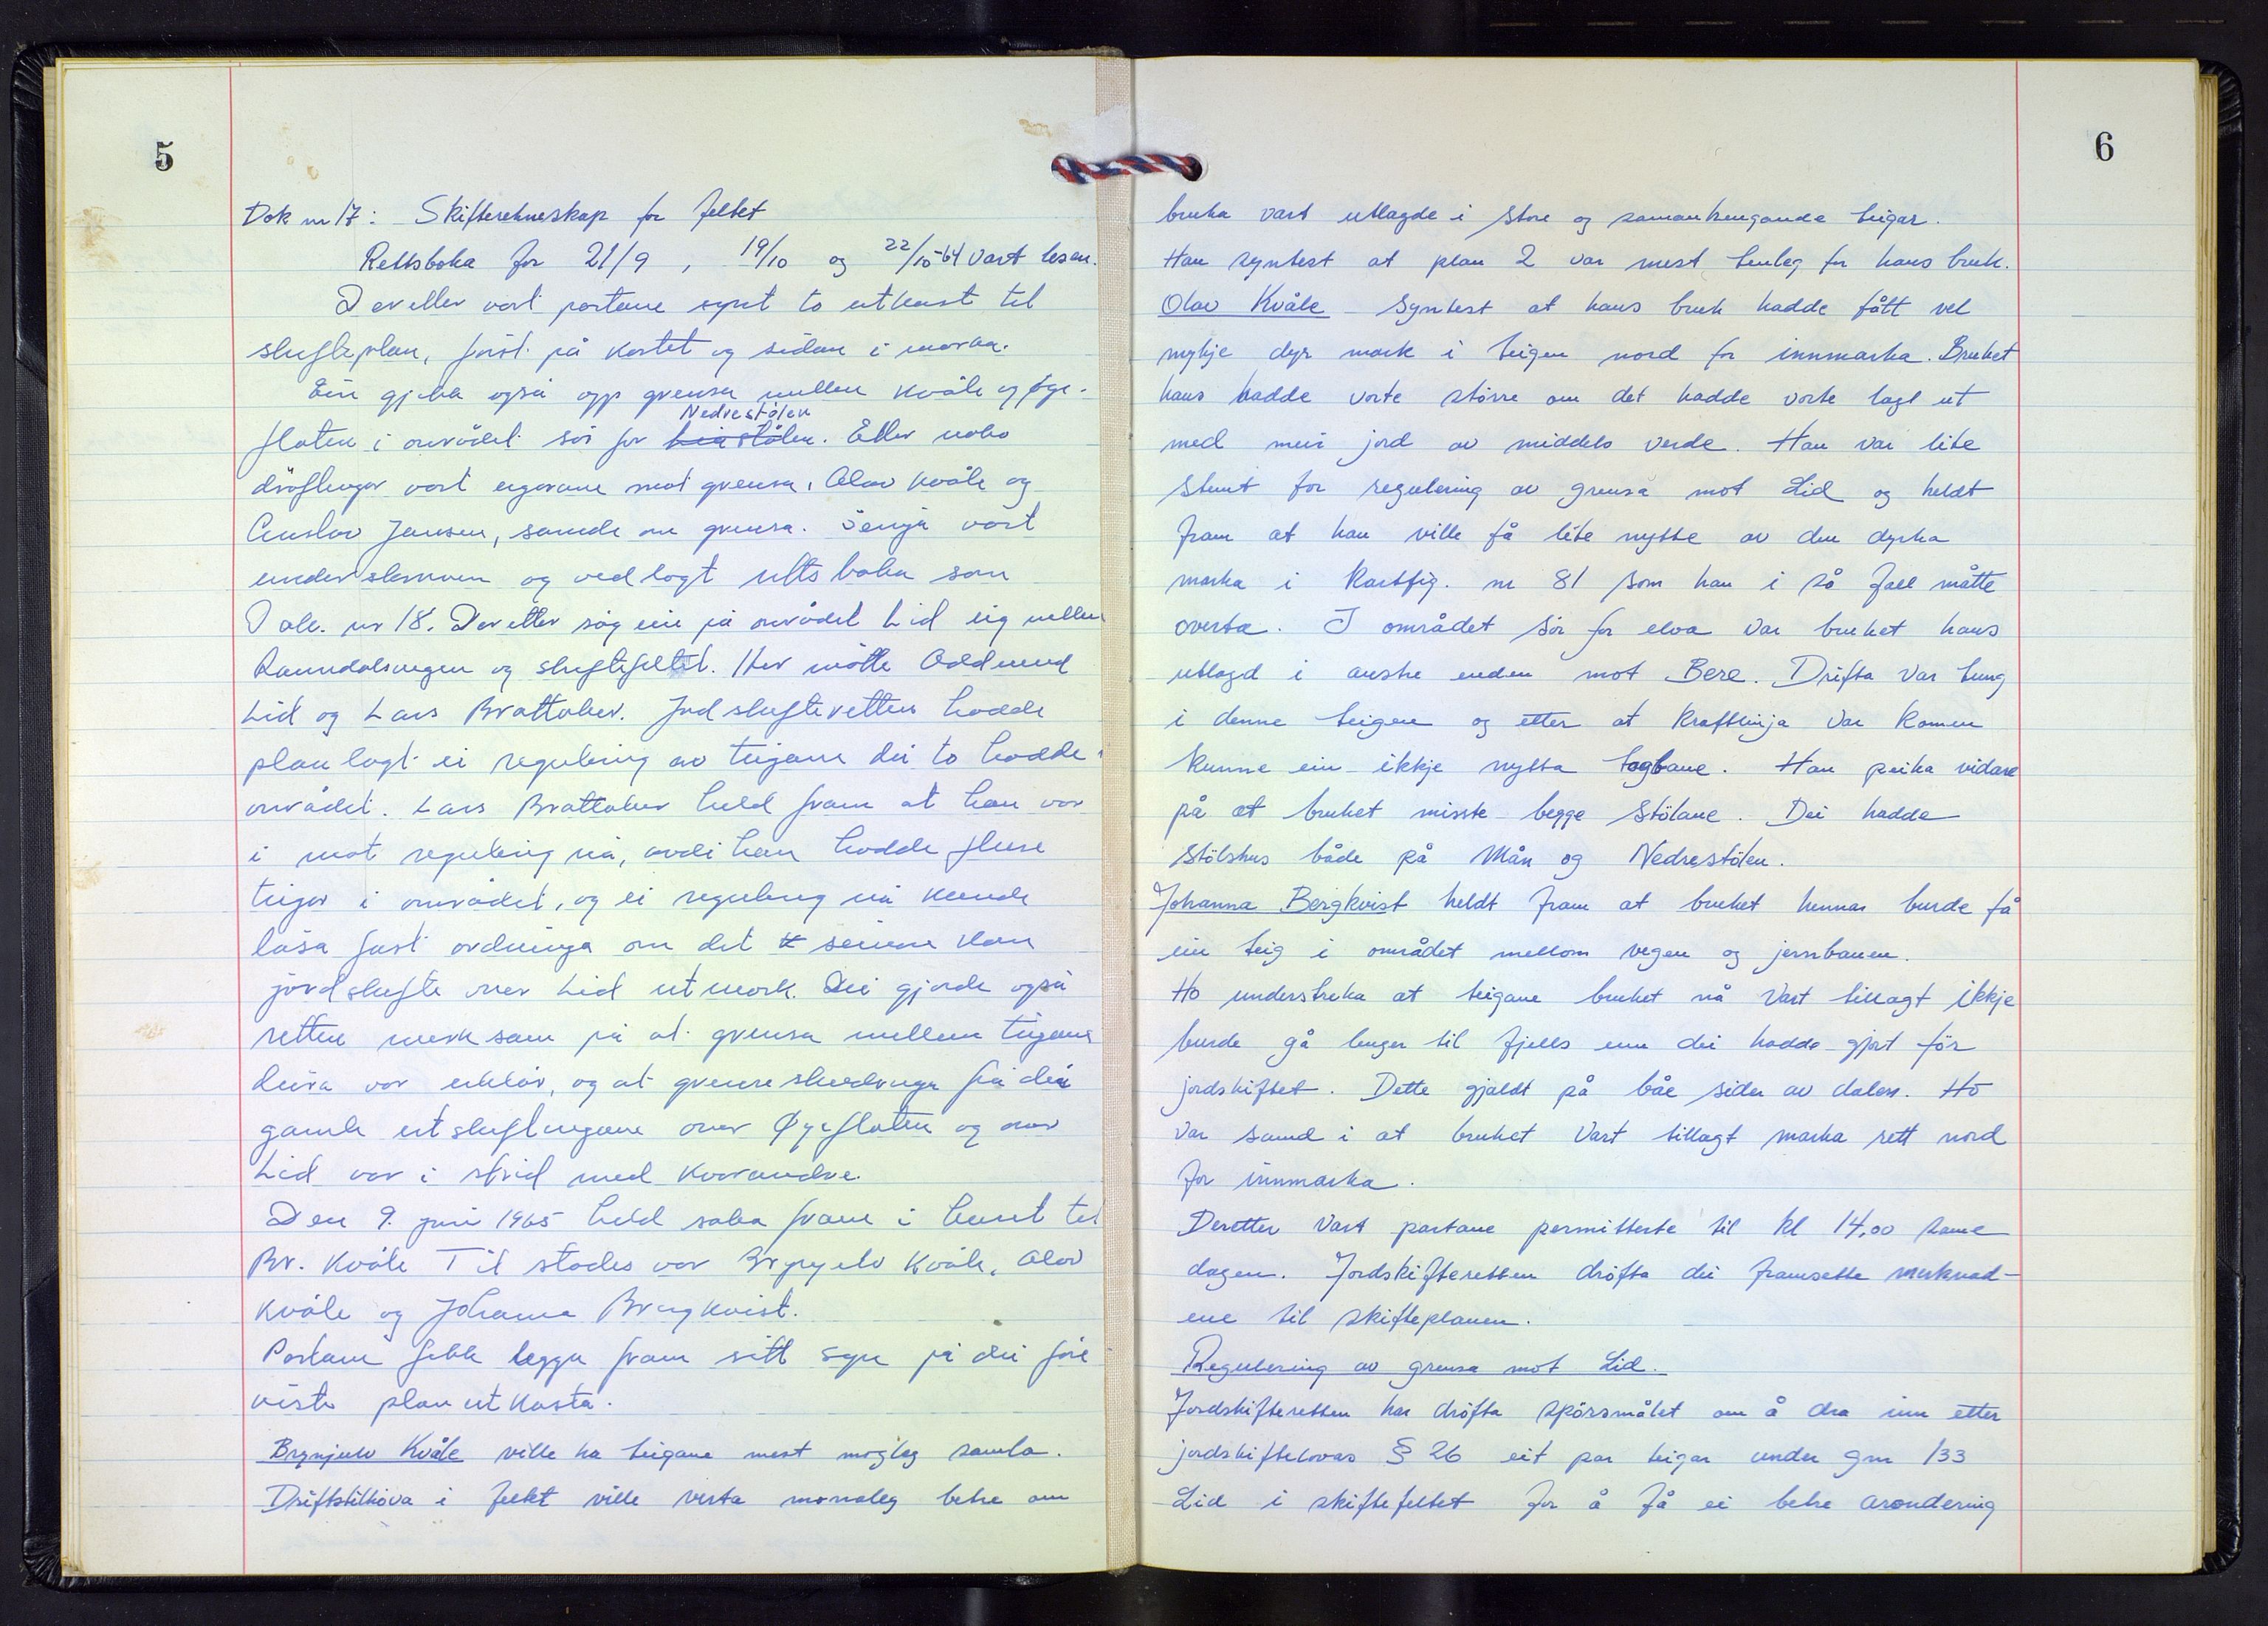 5
Dok nr 17: Skifterekneskap for feltet
Rettsboka for 21/9, 19/10 og 22/10-64 vart lesen.
Deretter vart partane synt to utkast til
skifteplan, først på kartet og sidan i marka.
Ein gjekk også opp grensa mellem Kvåle og Øye-
Nedrestølen
flaten i området sør for stølen. Etter noko
drøftingar vart eigarane mot grensa, Olav Kvåle og
Jansen, samde om grensa. Semja vart
underskriven og vedlagt rettsboka som
Dok. nr 18. Deretter såg ein på området Lid eig mellem
Raundalsvegen og skiftefeltet. Her møtte Oddmund
Lid og Lars Brattaker. Jordskifteretten hadde
planlagt ei regulering av teigane dei to hadde i
området. Lars Brattaker held fram at han var
i mot regulering nå, avdi han hadde fleire
teigar i området, og ei regulering nå kunde
låsa fast ordninga om det seinare kom
jordskifte over Lid utmark. Dei gjorde også
retten merksam på at grensa mellem teigane
deira var uklår, og at grenseskildringa frå dei
gamle utskiftingane over Øyeflaten og over
Lid var i strid med kvarandre.
Den 9. juni 1965 held saka fram i huset til
Br. Kvåle Til stades var Brynjulv Kvåle, Olav
Kvåle og Johanna Bergkvist.
Partane fekk leggja fram sitt syn på dei fore
viste planutkasta.
Brynjulv Kvåle ville ha teigane mest mogleg samla.
Driftstilhøva i feltet ville verta monaleg betre om
6
bruka vart utlagde i store og samanhengande teigar.
Han syntest at plan 2 var mest tenleg for hans bruk.
Olav Kvåle syntest at hans bruk hadde fått vel
mykje dyr mark i teigen nord for innmarka. Bruket
hans hadde vorte større om det hadde vorte lagt ut
med meir jord av middels verde. Han var lite
stemt for regulering av grensa mot Lid og heldt
fram at han ville få lite nytte av den dyrka
marka i kartfig. nr 81 som han i så fall måtte
overta. I området sør for elva var bruket hans
utlagd i austre enden mot Bere. Drifta var tung
i denne teigen og etter at kraftlinja var komen
kunne ein ikkje nytta taugbane. Han peika vidare
på at bruket misste begge stølane. Dei hadde
stølshus både på Mån og Nedrestølen.
Johanna Bergkvist heldt fram at bruket hennar burde få
ein teig i området mellom vegen og jernbanen.
Ho understreka at teigane bruket nå vart tillagt ikkje
burde gå lenger til fjells enn dei hadde gjort før
jordskiftet. Dette gjaldt på båe sider av dalen. Ho
var samd i at bruket vart tillagt marka rett nord
for innmarka.
Deretter vart partane permitterte til kl 14,00 same
dagen. Jordskifteretten drøfta dei framsette merknad-
ene til skifteplanen.
Regulering av grensa mot Lid.
Jordskifteretten har drøfta spørsmålet om å dra inn etter
jordskiftelovas § 26 eit par teigar under gnr 133
Lid i skiftefeltet for å få ei betre arondering